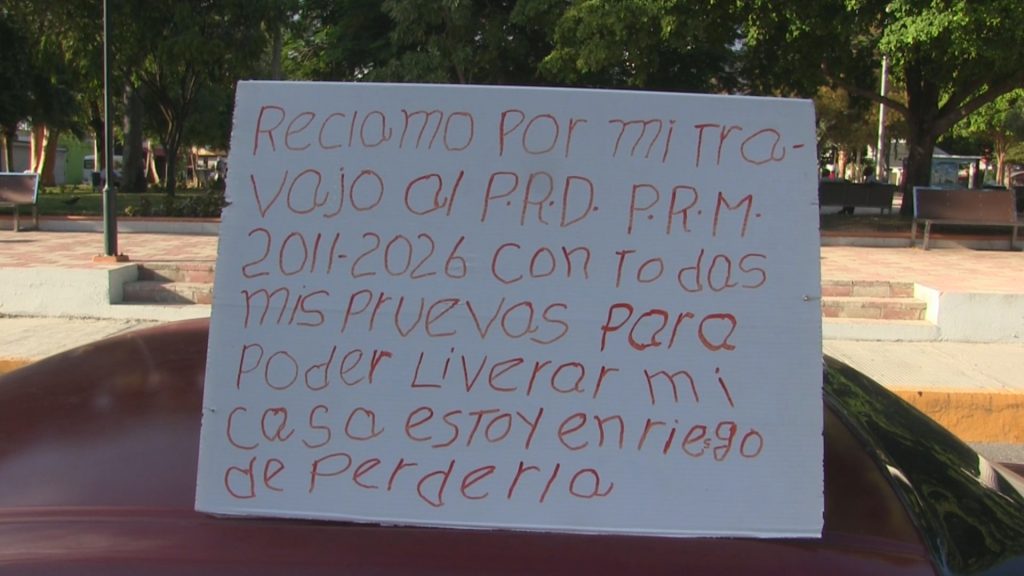 Reclamo por mi tra-
vajo al P.R.D. P.R.M.
2011-2026 con todas
mis pruevas para
poder Liverar mi
casa estoy en riesgo
de perderla